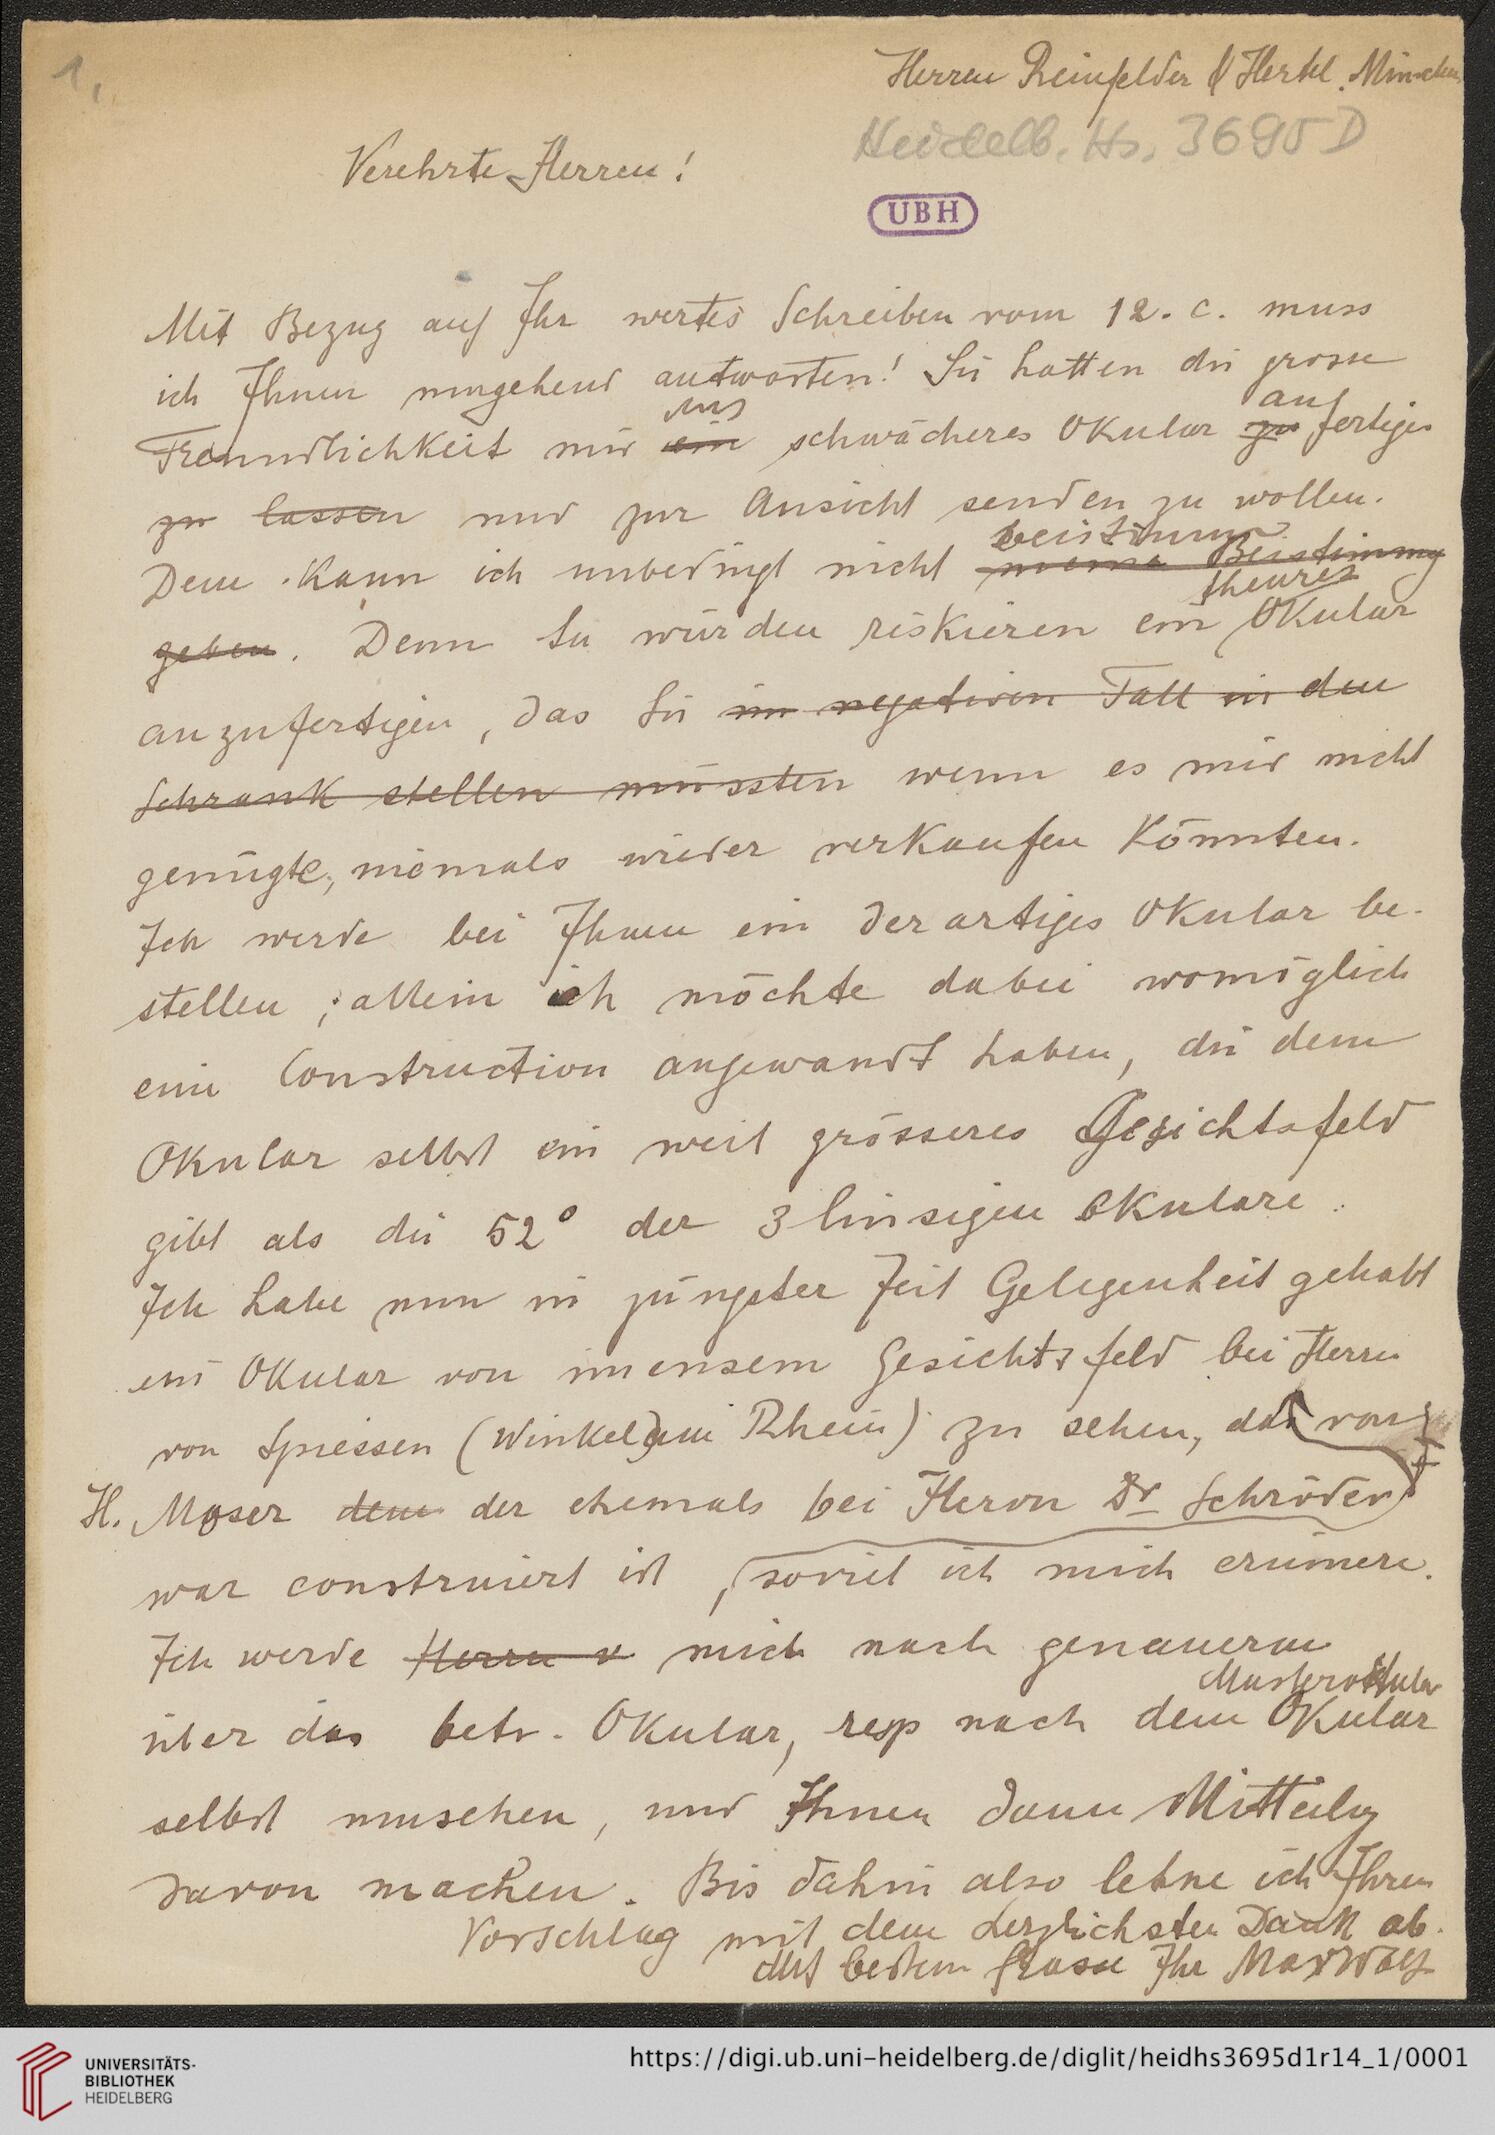 1.
Herren Reinfelder & Hertel, München
Heidelb. Hs. 3695 D
Verehrte Herren!
UBH
Mit Bezug auf Ihr wertes Schreiben vom 12. c. muss
ich Ihnen umgehend antworten! Sie hatten die grosse
Freundlichkeit mir ein schwächeres Okular zu fertigen
auf
zu lassen und zur Ansicht senden zu wollen.
beistimmen
Dem kann ich unbedingt nicht meine Beistimmung
theures
geben. Denn Sie würden riskieren ein Okular
anzufertigen, das Sie im negativen Fall in den
Schrank stellen müssten wenn es mir nicht
genügte, niemals wieder verkaufen könnten.
Ich werde bei Ihnen ein derartiges Okular be-
stellen; allein ich möchte dabei womöglich
eine Construction angewandt haben, die dem
Okular selbst ein weit grösseres Gesichtsfeld
gibt als die 52° der 3 linsigen Okulare.
Ich habe nun in jüngster Zeit Gelegenheit gehabt
ein Okular von imensem Gesichtsfeld bei Herrn
von Spiessen (Winkel am Rhein) zu sehen, das von
H. Moser dem der ehemals bei Herrn Dr Schröder
war construiert ist, soviel ich mich erinnere.
Ich werde Herrn v mich nach genauerem
Musterokular
über das betr. Okular, resp nach dem Okular
selbst umsehen, und Ihnen dann Mitteilg
davon machen. Bis dahin also lehne ich Ihren
Vorschlag mit dem herzlichsten Dank ab.
Mit bestem Grusse Ihr Max Wolf
UNIVERSITÄTS-
BIBLIOTHEK
HEIDELBERG
https://digi.ub.uni-heidelberg.de/diglit/heidhs3695d1r14_1/0001